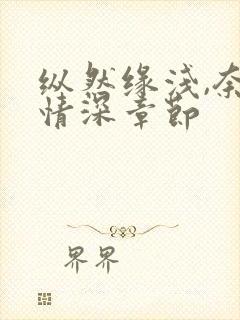 纵然缘浅,奈
情深章节
界界